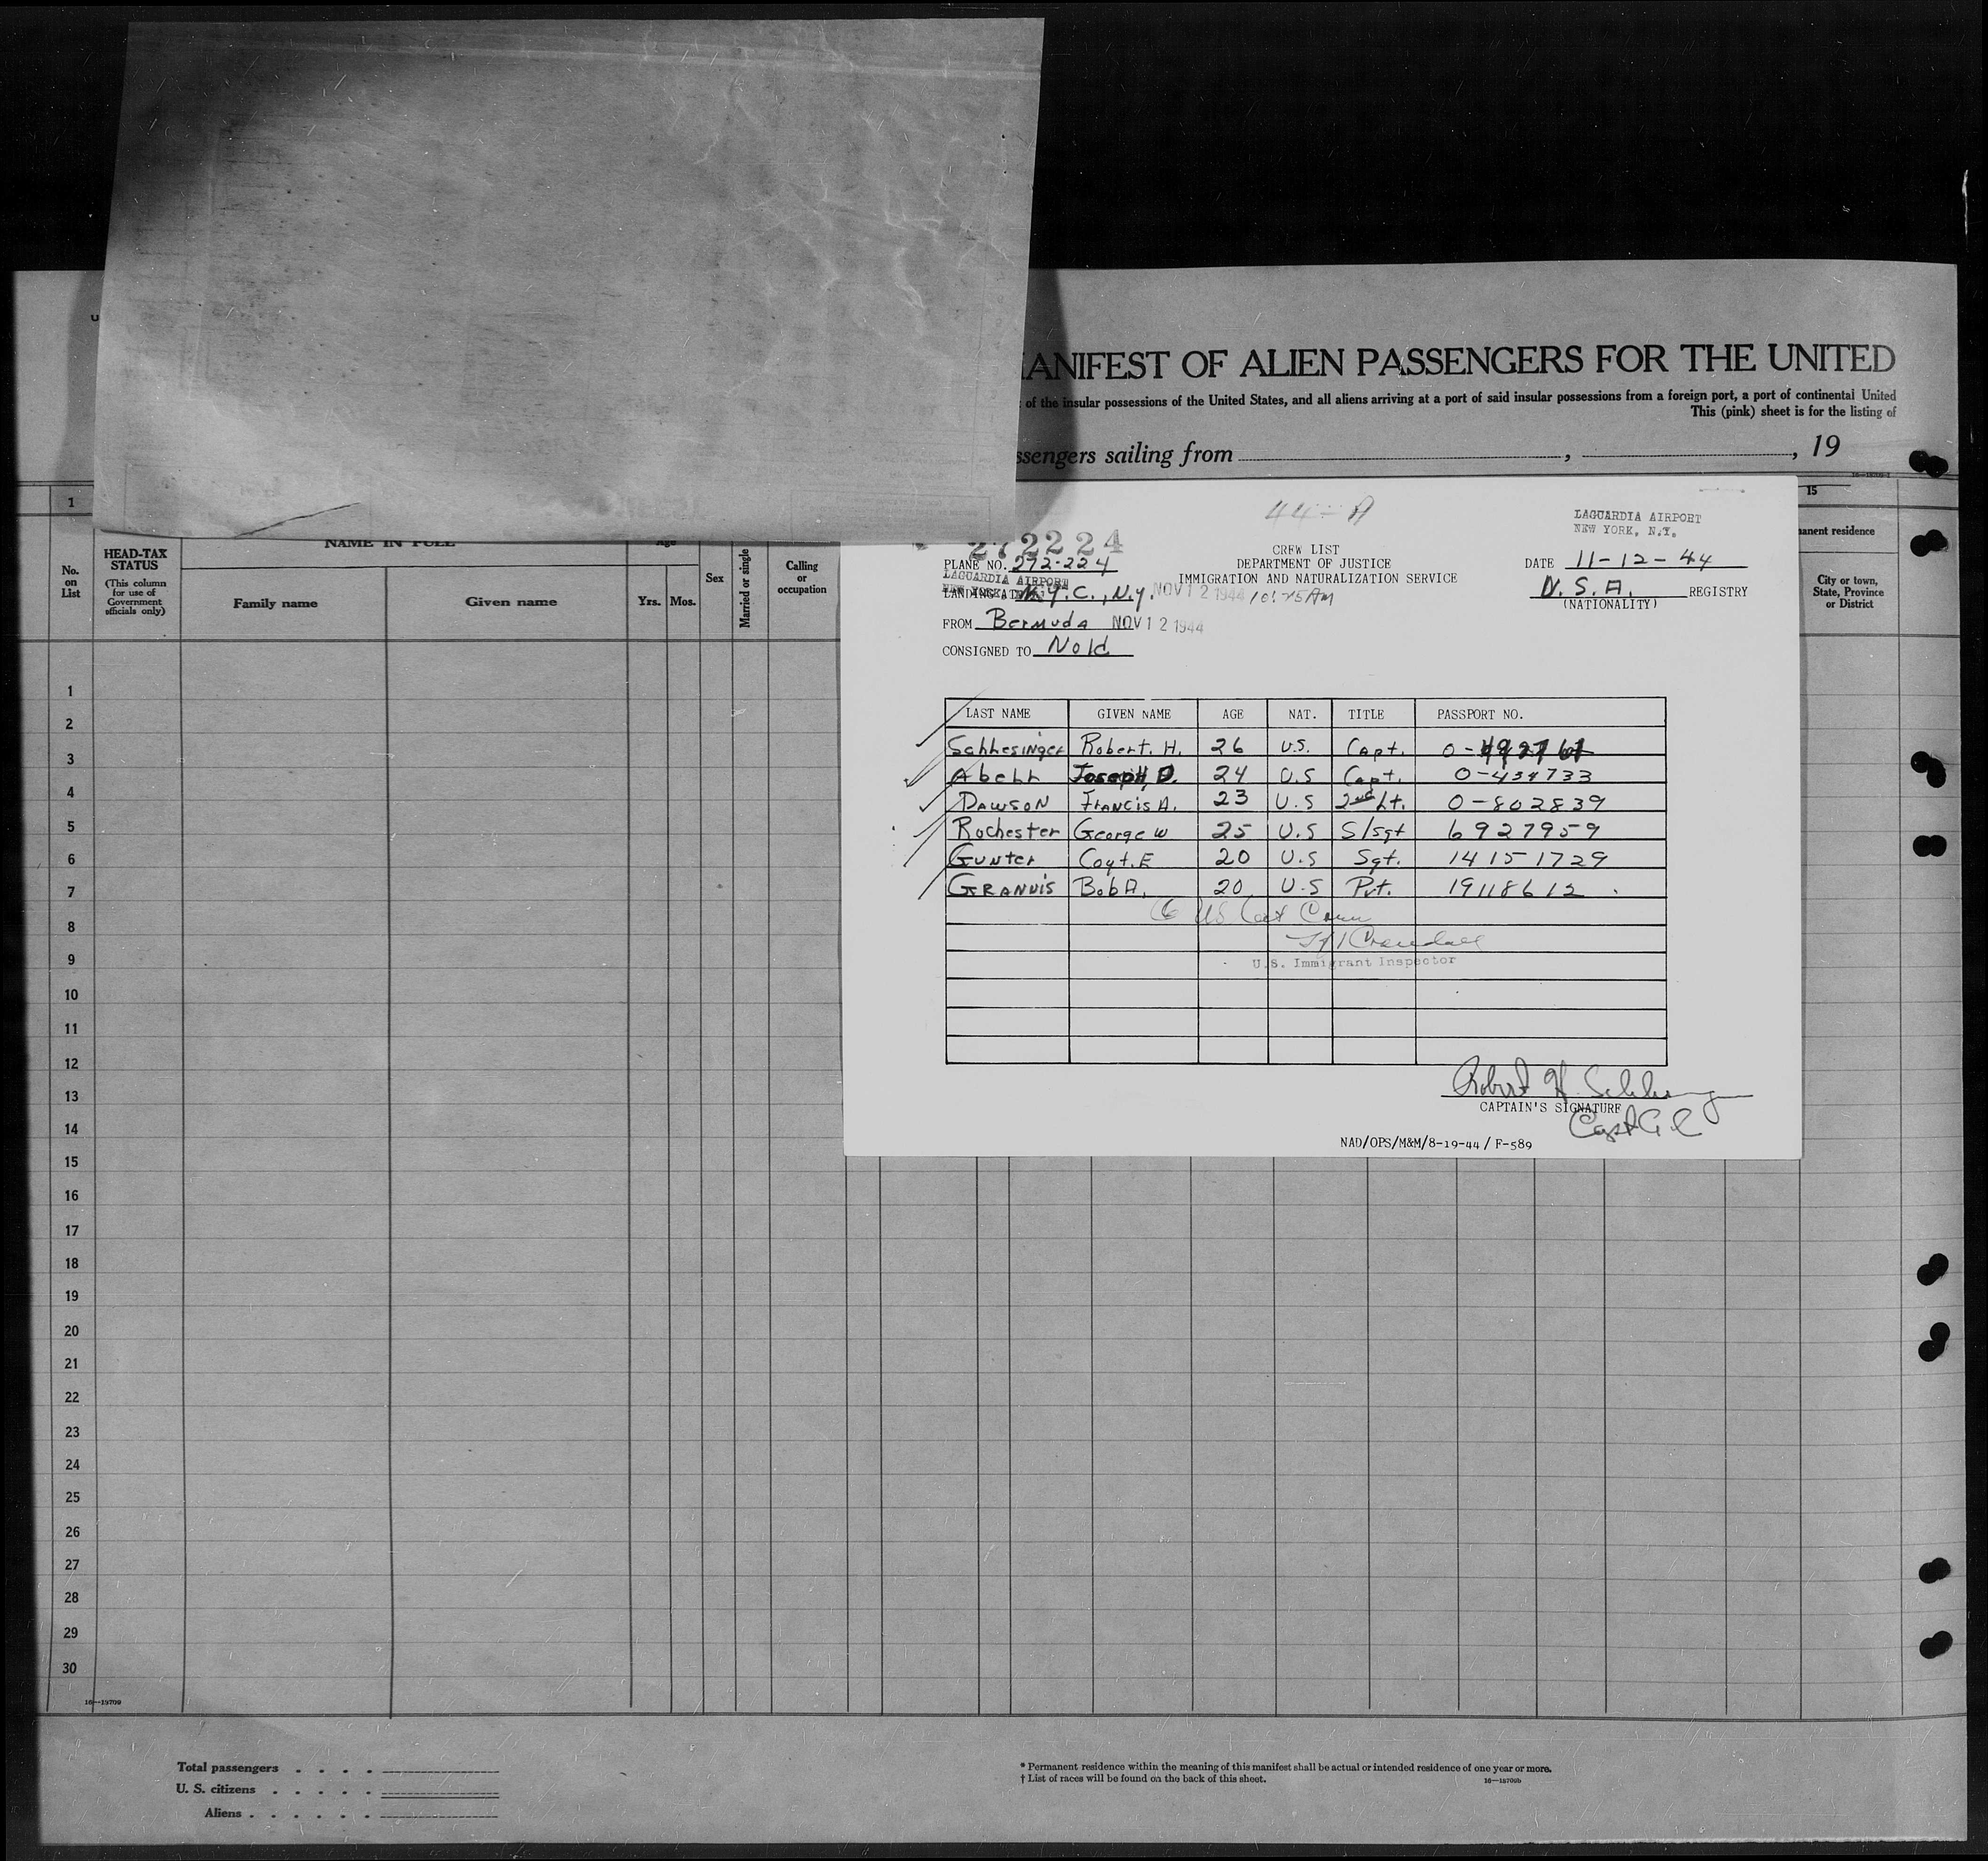 MANIFEST OF ALIEN PASSENGERS FOR THE UNITED
of the insular possessions of the United States, and all aliens arriving at a port of said insular possessions from a foreign port, a port of continental United
This (pink) sheet is for the listing of
ssengers sailing from , , 19
16—18709-1
1
15
44 - A
272224
LAGUARDIA AIRPORT
NEW YORK, N.Y.
CREW LIST
DEPARTMENT OF JUSTICE
IMMIGRATION AND NATURALIZATION SERVICE
PLANE NO. 272-224
DATE 11-12-44
LAGUARDIA AIRPORT
NEW YORK,
LANDING AT N.Y.C., N.Y. NOV 12 1944 10:25AM
U.S.A. REGISTRY
(NATIONALITY)
FROM Bermuda NOV 12 1944
CONSIGNED TO Nold
LAST NAME GIVEN NAME AGE NAT. TITLE PASSPORT NO.
Schhesinger Robert. H. 26 U.S. Capt. 0-
Abehh Joseph D. 24 U.S Capt. 0-434733
DAWSON FRANCIS A. 23 U.S 2nd Lt. 0-802839
Rochester George W 25 U.S S/sgt 6927959
Gunter Coyt. E 20 U.S Sgt. 14151729
GRANNIS Bob A. 20 U.S Pvt. 19118612
6 US
Crandall
U.S. Immigrant Inspector
Robert H. Schlesinger
CAPTAIN'S SIGNATURE
Capt A.C
NAD/OPS/M&M/8-19-44 / F-589
No.
on
List
HEAD-TAX
STATUS
(This column
for use of
Government
officials only)
NAME IN FULL
Family name
Given name
Age
Yrs.
Mos.
Sex
Married or single
Calling
or
occupation
anent residence
City or town,
State, Province
or District
1
2
3
4
5
6
7
8
9
10
11
12
13
14
15
16
17
18
19
20
21
22
23
24
25
26
27
28
29
30
16—18709
Total passengers . . . .
U. S. citizens . . . . .
Aliens . . . . . .
* Permanent residence within the meaning of this manifest shall be actual or intended residence of one year or more.
† List of races will be found on the back of this sheet.
16—18709b